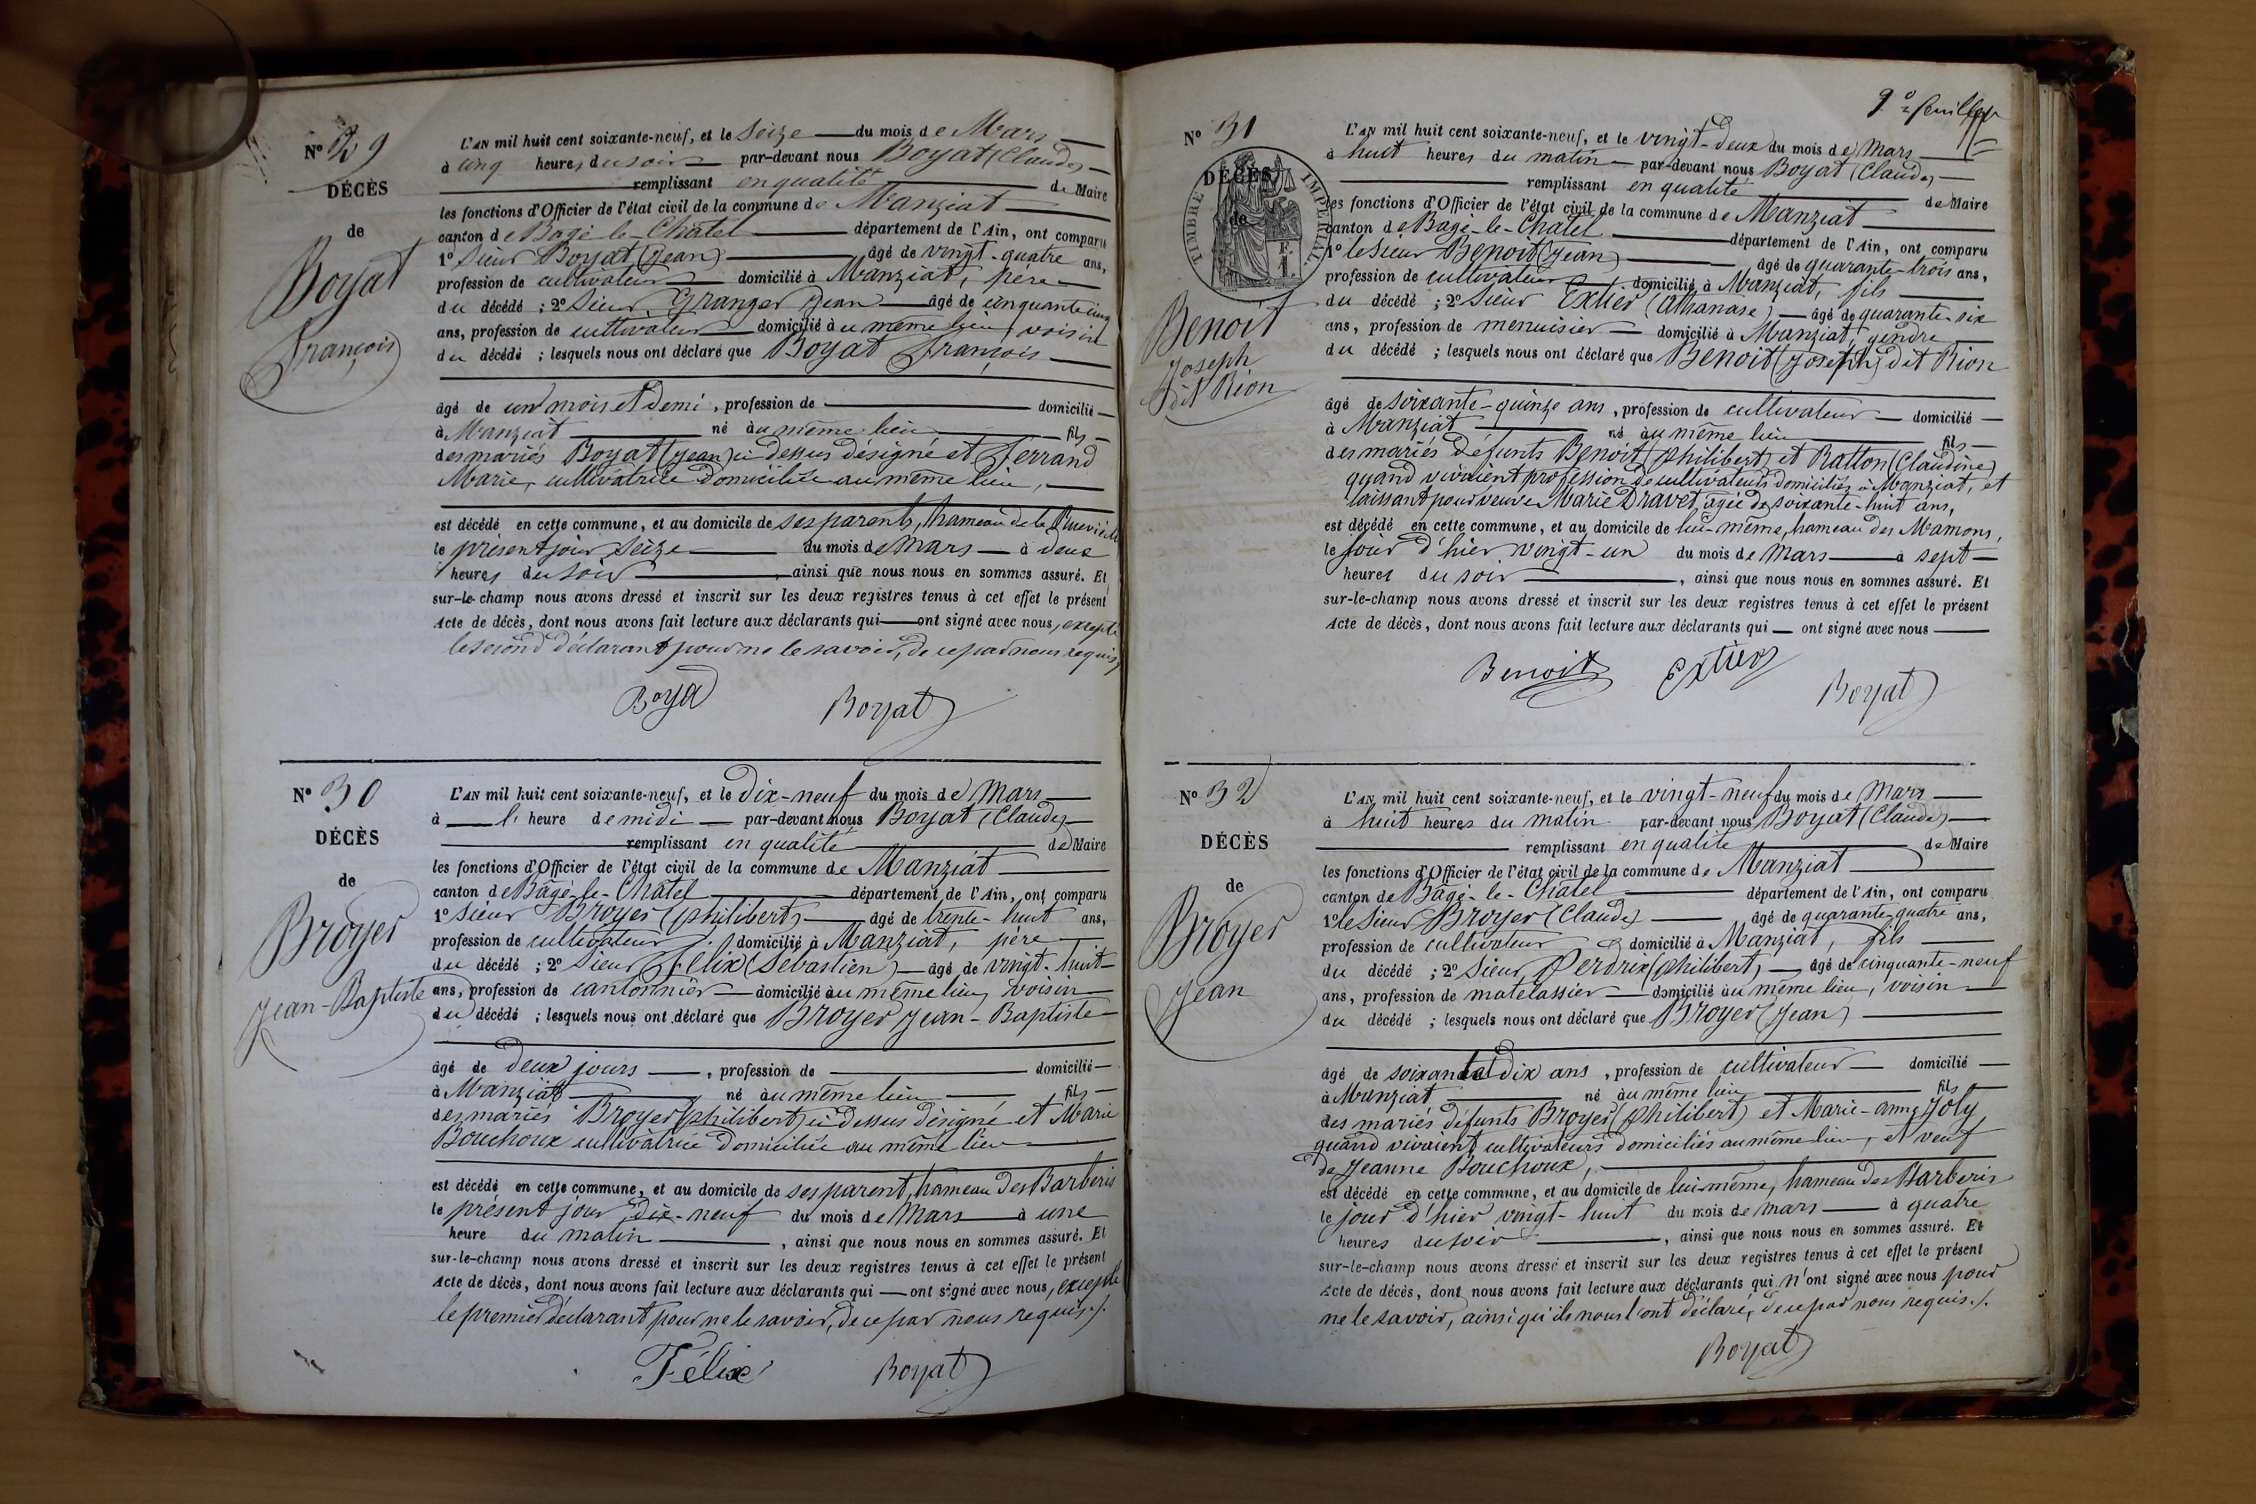 N° 29
DÉCÈS
de
Boyat
François
L'AN mil huit cent soixante-neuf, et le seize du mois de Mars
à cinq heures du soir par-devant nous Boyat (Claude)
remplissant en qualité de Maire
les fonctions d'Officier de l'état civil de la commune de Manziat
canton de Bâgé-le-Châtel département de l'Ain, ont comparu
1° sieur Boyat (Jean) âgé de vingt-quatre ans,
profession de cultivateur domicilié à Manziat, père
du décédé ; 2° sieur Granger Jean âgé de cinquante cinq
ans, profession de cultivateur domicilié au même lieu, voisin
du décédé ; lesquels nous ont déclaré que Boyat François
âgé de un mois et demi, profession de domicilié
à Manziat né au même lieu fils
des mariés Boyat (Jean) ci dessus désigné et Ferrand
Marie, cultivatrice domiciliée au même lieu,
est décédé en cette commune, et au domicile de ses parents, hameau de la
le présent jour seize du mois de Mars à deux
heures du soir, ainsi que nous nous en sommes assuré. Et
sur-le-champ nous avons dressé et inscrit sur les deux registres tenus à cet effet le présent
Acte de décès, dont nous avons fait lecture aux déclarants qui ont signé avec nous, excepté
le second déclarant pour ne le savoir, de ce par nous requis
Boya Boyat
N° 30
DÉCÈS
de
Broyer
Jean-Baptiste
L'AN mil huit cent soixante-neuf, et le dix-neuf du mois de Mars
à l' heure de midi par-devant nous Boyat (Claude)
remplissant en qualité de Maire
les fonctions d'Officier de l'état civil de la commune de Manziat
canton de Bâgé-le-Châtel département de l'Ain, ont comparu
1° sieur Broyer (Philibert) âgé de trente-huit ans,
profession de cultivateur domicilié à Manziat, père
du décédé ; 2° sieur Félix (Sébastien) âgé de vingt-huit
ans, profession de cantonnier domicilié au même lieu, voisin
du décédé ; lesquels nous ont déclaré que Broyer Jean-Baptiste
âgé de deux jours, profession de domicilié
à Manziat né au même lieu fils
des mariés Broyer (Philibert) ci dessus désigné et Marie
Bouchoux cultivatrice domiciliée au même lieu
est décédé en cette commune, et au domicile de ses parent, hameau des Barberis
le présent jour dix-neuf du mois de Mars à une
heure du matin, ainsi que nous nous en sommes assuré. Et
sur-le-champ nous avons dressé et inscrit sur les deux registres tenus à cet effet le présent
Acte de décès, dont nous avons fait lecture aux déclarants qui ont signé avec nous, excepté
le premier déclarant pour ne le savoir, de ce par nous requis./.
Félix Boyat
9e feuillet
N° 31
DÉCÈS
de
TIMBRE IMPÉRIAL
F.
1.
Benoit
Joseph
dit Rion
L'AN mil huit cent soixante-neuf, et le vingt-deux du mois de Mars
à huit heures du matin par-devant nous Boyat (Claude)
remplissant en qualité de Maire
les fonctions d'Officier de l'état civil de la commune de Manziat
canton de Bâgé-le-Châtel département de l'Ain, ont comparu
1° le sieur Benoit (Jean) âgé de quarante-trois ans,
profession de cultivateur domicilié à Manziat, fils
du décédé ; 2° sieur Extier (Athanase) âgé de quarante-six
ans, profession de menuisier domicilié à Manziat, gendre
du décédé ; lesquels nous ont déclaré que Benoit (Joseph) dit Rion
âgé de soixante-quinze ans, profession de cultivateur domicilié
à Manziat né au même lieu fils
des mariés défunts Benoit (Philibert) et Ratton (Claudine)
quand vivaient profession de cultivateurs domiciliés à Manziat, et
laissant pour veuve Marie Dravet, âgée de soixante-huit ans,
est décédé en cette commune, et au domicile de lui-même, hameau des Mamons,
le jour d'hier vingt-un du mois de Mars à sept
heures du soir, ainsi que nous nous en sommes assuré. Et
sur-le-champ nous avons dressé et inscrit sur les deux registres tenus à cet effet le présent
Acte de décès, dont nous avons fait lecture aux déclarants qui ont signé avec nous
Benoit Extier Boyat
N° 32
DÉCÈS
de
Broyer
Jean
L'AN mil huit cent soixante-neuf, et le vingt-neuf du mois de Mars
à huit heures du matin par-devant nous Boyat (Claude)
remplissant en qualité de Maire
les fonctions d'Officier de l'état civil de la commune de Manziat
canton de Bâgé-le-Châtel département de l'Ain, ont comparu
1° le sieur Broyer (Claude) âgé de quarante-quatre ans,
profession de cultivateur domicilié à Manziat, fils
du décédé ; 2° sieur Perdrix (Philibert) âgé de cinquante-neuf
ans, profession de matelassier domicilié au même lieu, voisin
du décédé ; lesquels nous ont déclaré que Broyer (Jean)
âgé de soixante dix ans, profession de cultivateur domicilié
à Manziat né au même lieu fils
des mariés défunts Broyer (Philibert) et Marie-Anne Joly
quand vivaient cultivateurs domiciliés au même lieu, et veuf
de Jeanne Bouchoux,
est décédé en cette commune, et au domicile de lui-même, hameau des Barberis
le jour d'hier vingt-huit du mois de Mars à quatre
heures du soir, ainsi que nous nous en sommes assuré. Et
sur-le-champ nous avons dressé et inscrit sur les deux registres tenus à cet effet le présent
Acte de décès, dont nous avons fait lecture aux déclarants qui n'ont signé avec nous pour
ne le savoir, ainsi qu'ils nous l'ont déclaré, de ce par nous requis./.
Boyat